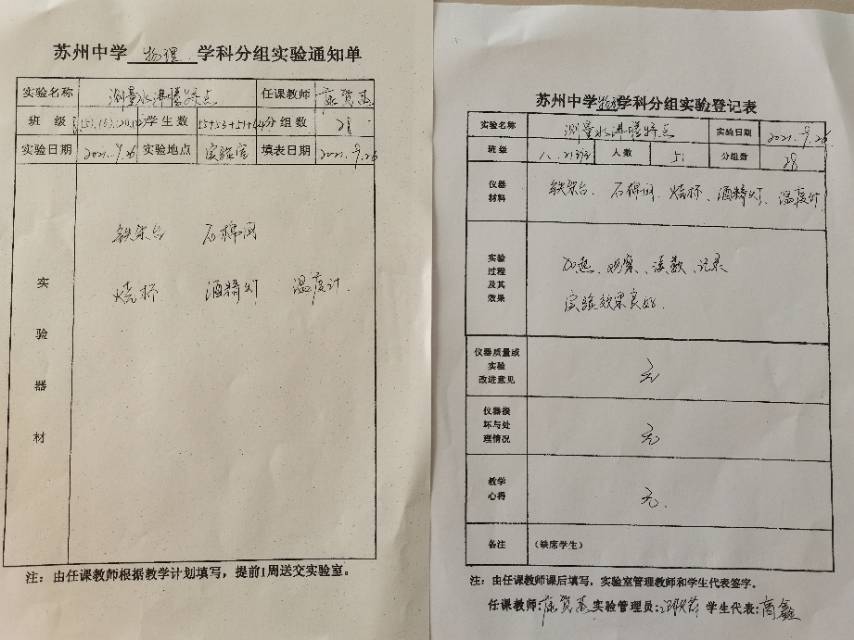 苏州中学 物理 学科分组实验通知单
实验名称 测量水沸腾特点 任课教师
班 级 学生数 分组数 28
实验日期 2021.9.26 实验地点 实验室 填表日期 2021.9.26
铁架台 石棉网
烧杯 酒精灯 温度计
实
验
器
材
注：由任课教师根据教学计划填写，提前1周送交实验室。
苏州中学物理学科分组实验登记表
实验名称 测量水沸腾特点 实验日期 2021.9.26
班级 人数 51 分组数 28
仪器
材料
铁架台、石棉网、烧杯、酒精灯、温度计
实验
过程
及其
效果
加热、观察、读数、记录
实验效果良好.
仪器质量或
实验
改进意见
无
仪器损
坏与处
理情况
无
教学
心得
无.
备注 （缺席学生）
注：由任课教师课后填写，实验室管理教师和学生代表签字。
任课教师： 实验管理员： 学生代表：高鑫